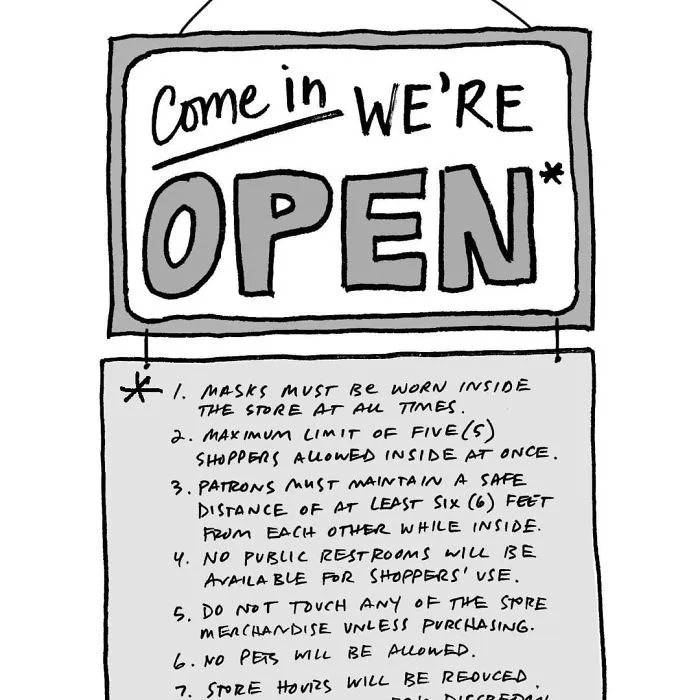 Come in WE'RE
OPEN*
* 1. MASKS MUST BE WORN INSIDE
THE STORE AT ALL TIMES.
2. MAXIMUM LIMIT OF FIVE (5)
SHOPPERS ALLOWED INSIDE AT ONCE.
3. PATRONS MUST MAINTAIN A SAFE
DISTANCE OF AT LEAST SIX (6) FEET
FROM EACH OTHER WHILE INSIDE.
4. NO PUBLIC RESTROOMS WILL BE
AVAILABLE FOR SHOPPERS' USE.
5. DO NOT TOUCH ANY OF THE STORE
MERCHANDISE UNLESS PURCHASING.
6. NO PETS WILL BE ALLOWED.
7. STORE HOURS WILL BE REDUCED.